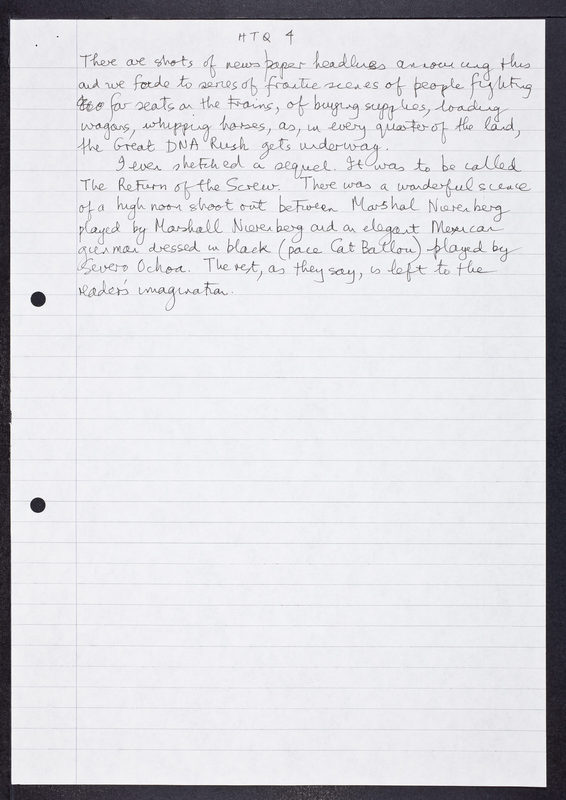 HTQ 4
There are shots of newspaper headlines announcing this
and we fade to series of frantic scenes of people fighting
for seats on the trains, of buying supplies, loading
wagons, whipping horses, as, in every quarter of the land,
the Great DNA Rush gets underway.
I even sketched a sequel. It was to be called
The Return of the Screw. There was a wonderful scence
of a high noon shoot out between Marshal Nirenberg
played by Marshall Nirenberg and an elegant Mexican
gunman dressed in black (pace Cat Batlou) played by
Severo Ochoa. The rest, as they say, is left to the
reader's imagination.